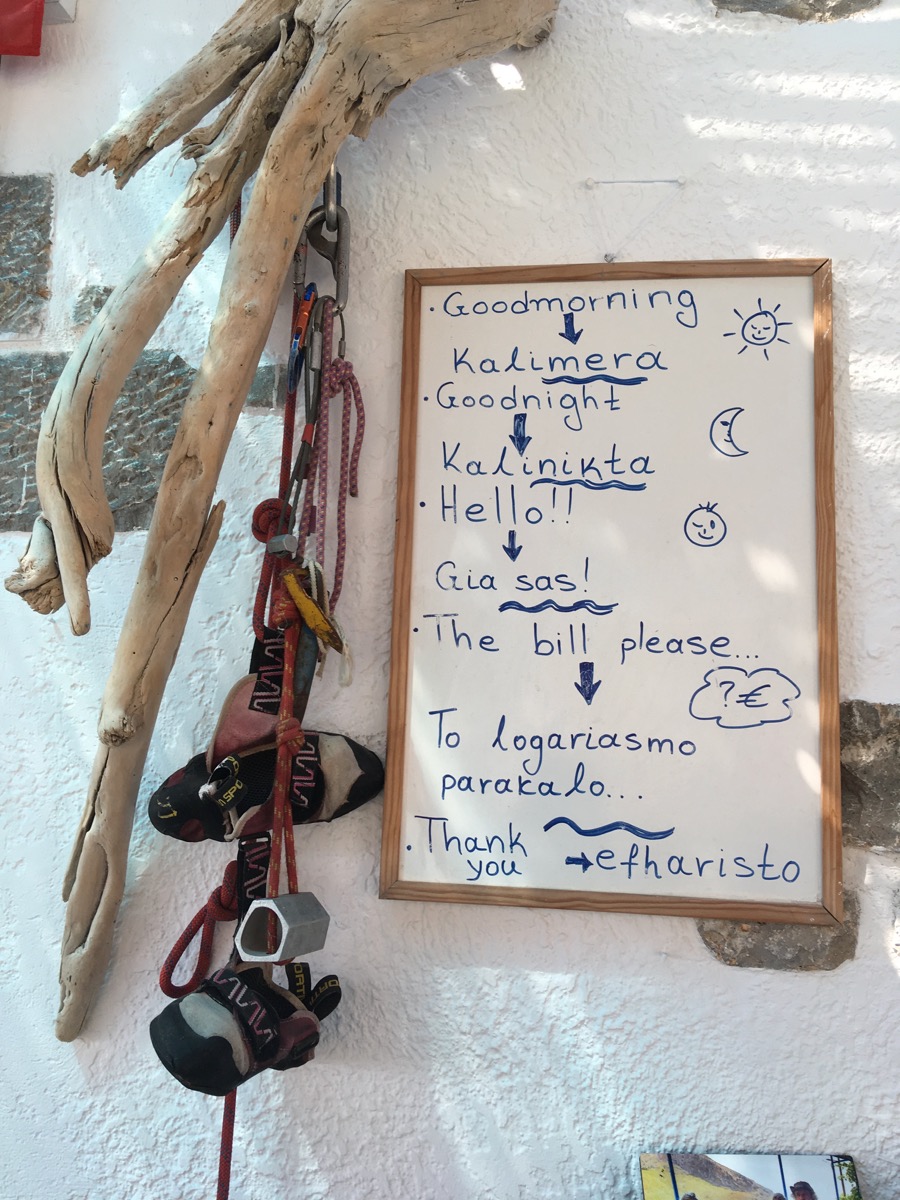 · Goodmorning
Kalimera
· Goodnight
Kalinikta
· Hello!!
Gia sas!
· The bill please...
? €
To logariasmo
parakalo...
· Thank
you
→ efharisto